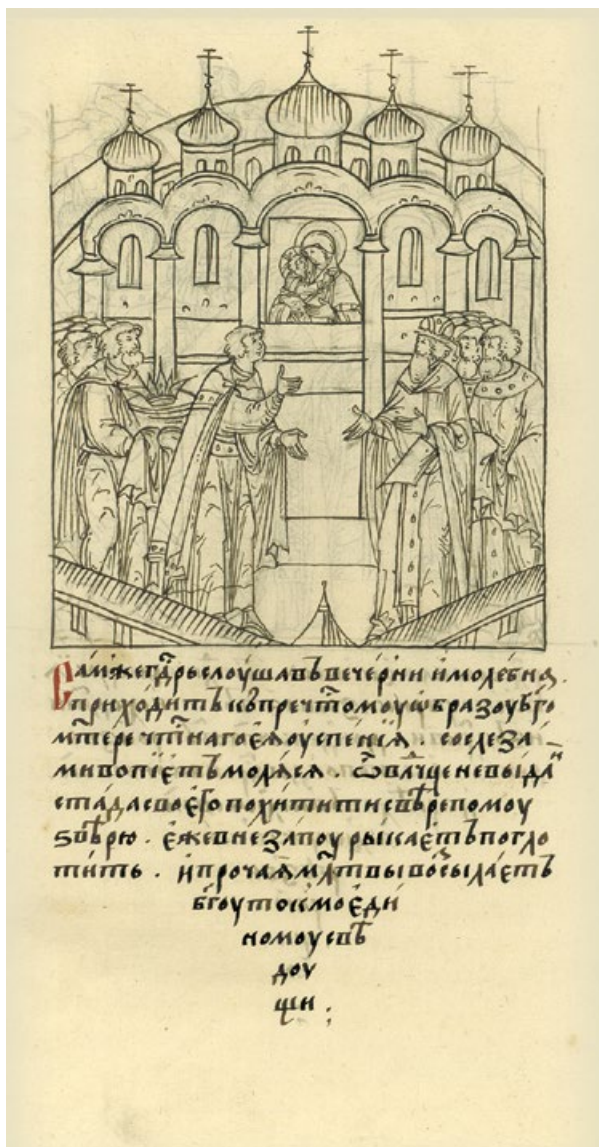 Са́мжегдⷭ҇рьслоушавъвече́рни имоле́бнаѧ.
приходи́тъкъпречⷭ҇томоуѡбразоубг҃о
мт҃речⷭ҇тнагоеѧ̀оуспе́нїѧ . сослеза
мивопїе́тъмолѧ́сѧ . ѽвлⷣчценевыдаⷤи
ста́дасвоегопохититисвѣрепомоу
ѕвѣрю . е́жевнезапоурыкае́тъпогло
тить . ипрочаѧмлт҃вывосылаетъ
бг҃оутокмоеди
номоусвѣ
доу
щи .